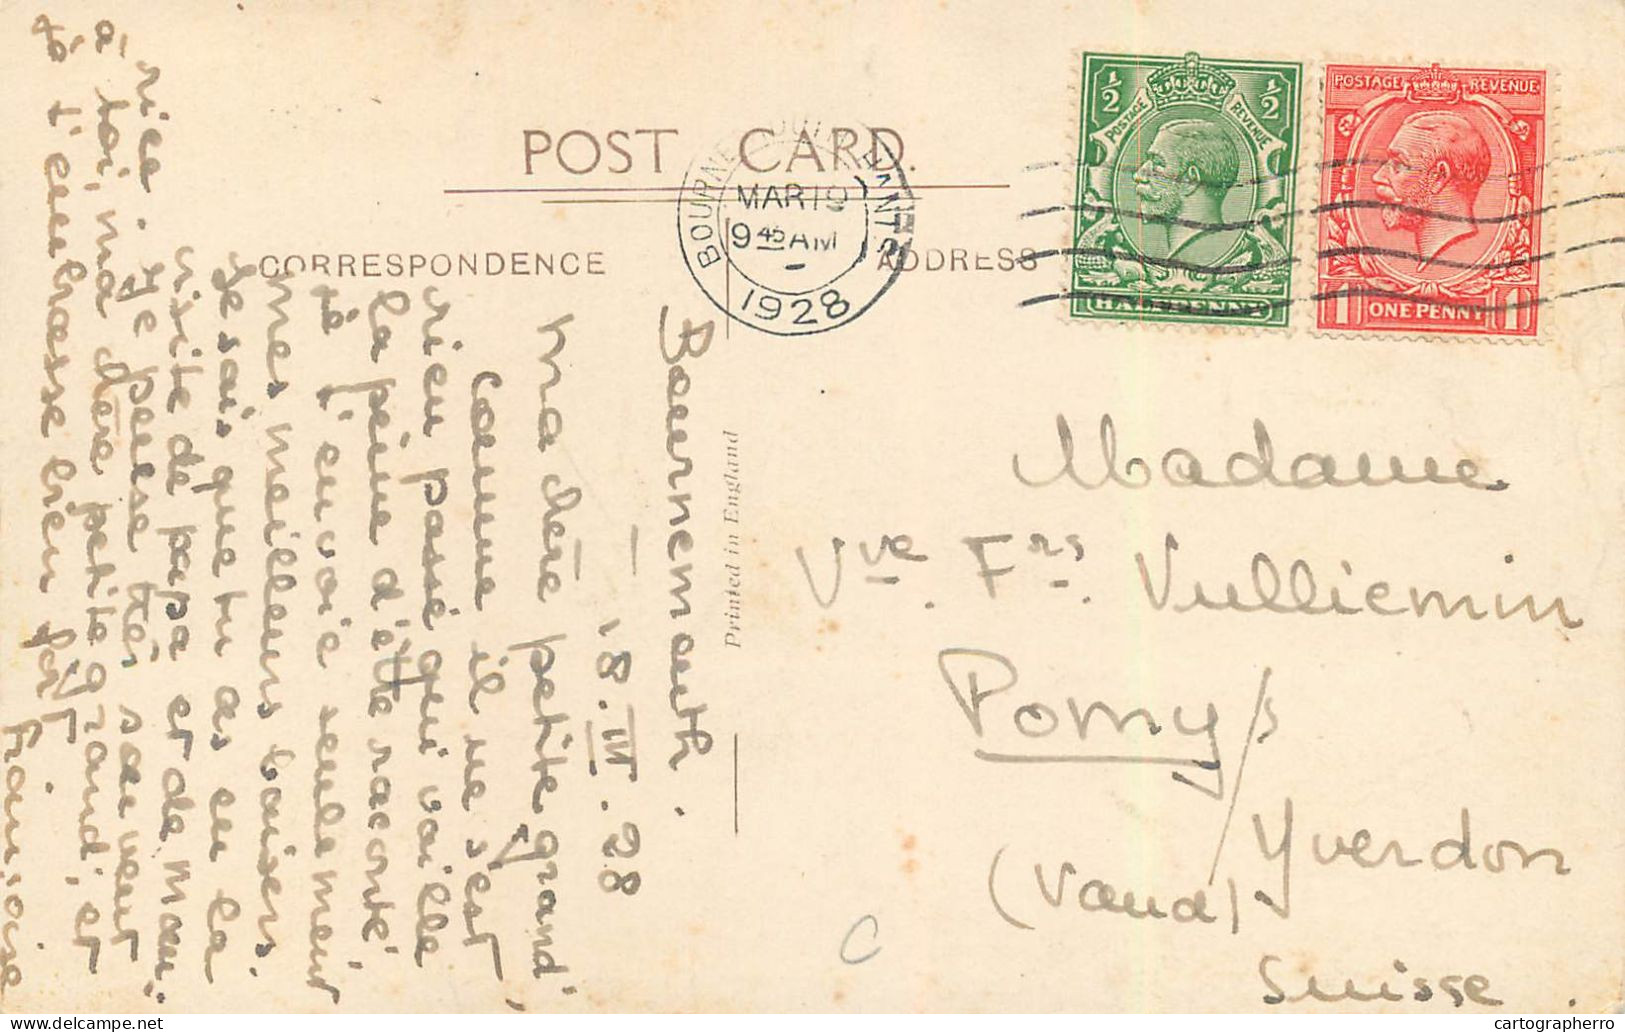 POST CARD.
CORRESPONDENCE
ADDRESS
BOURNEMOUTH
MAR 19
9 45 AM
1928
½ ½
POSTAGE REVENUE
HALFPENNY
POSTAGE REVENUE
1 ONE PENNY 1
Printed in England
Bournemouth.
18.III.28
Ma chère petite grand'
Comme il ne s'est
rien passé qui vaille
la peine d'être raconté,
je t'envoie seulement
mes meilleurs baisers.
Je sais que tu as eu la
visite de papa et de Mau-
rice. Je pense très souvent
à toi, ma chère petite grand', et
je t'embrasse bien fort
Françoise
Madame
Vve. Frs. Vulliemin
Pomy s/
Yverdon
(Vaud)
Suisse.
C
delcampe.net
cartographerro